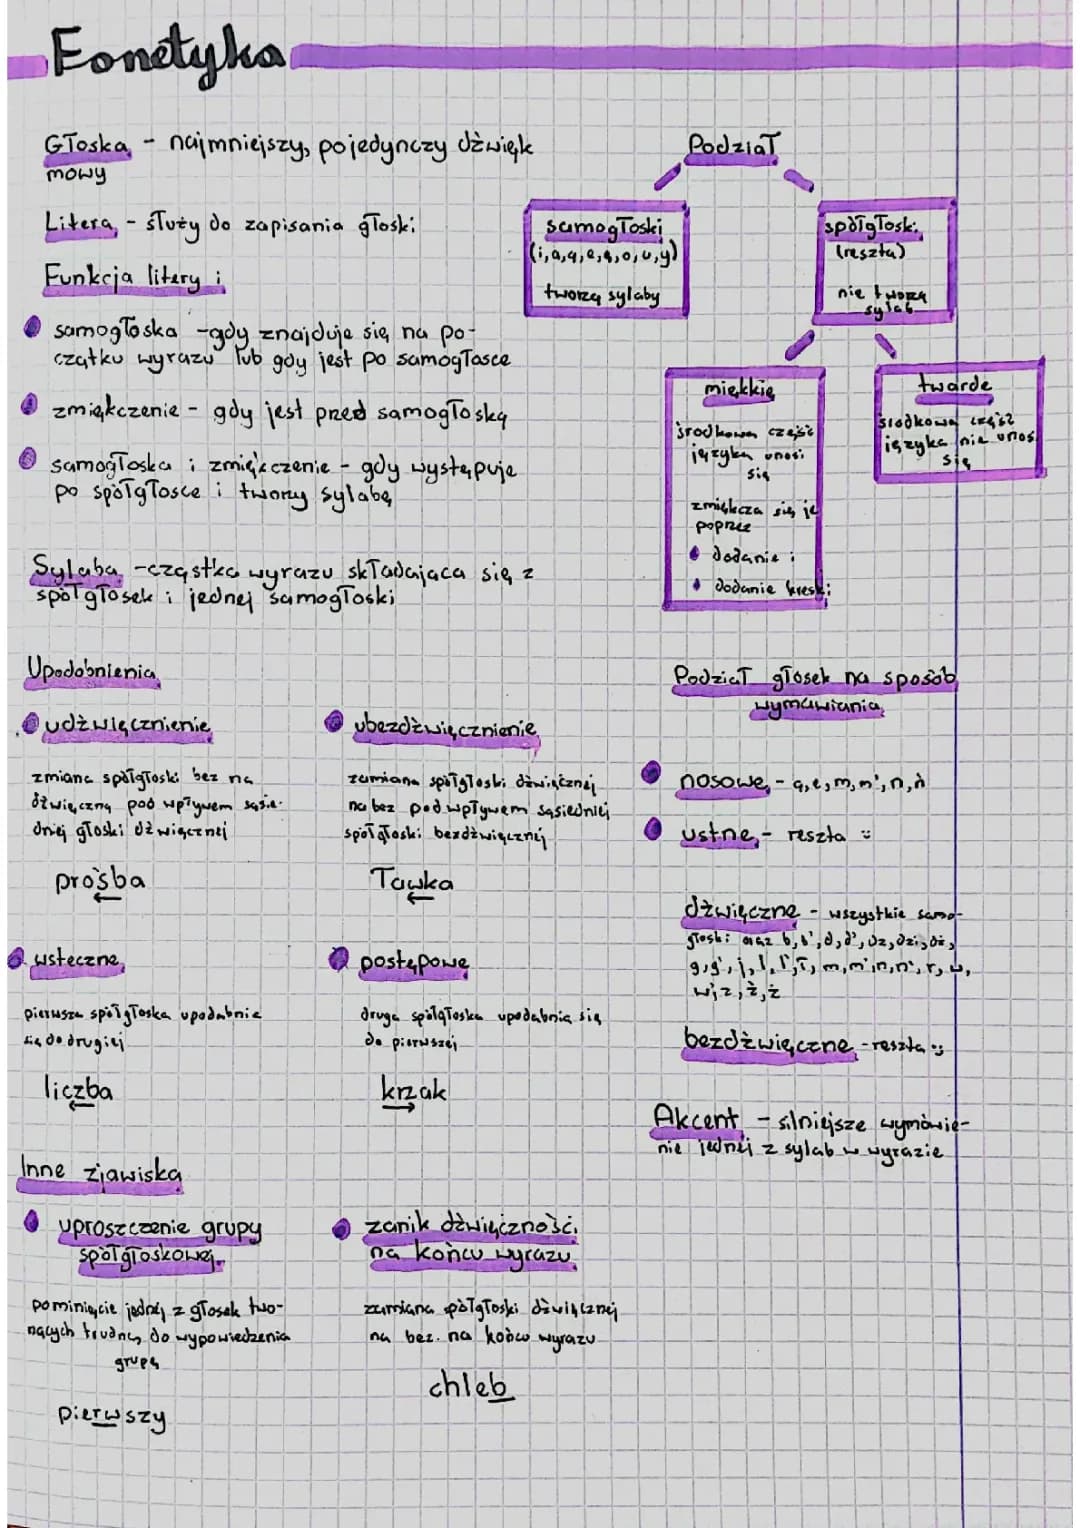 Fonetyka
Głoska - najmniejszy, pojedynczy dźwięk
mowy
Litera - służy do zapisania głoski
Funkcja litery i
samogłoska - gdy znajduje się na po-
czątku wyrazu lub gdy jest po samogłosce
zmiękczenie - gdy jest przed samogłoską
samogłoska i zmiękczenie - gdy występuje
po spółgłosce i tworzy sylabę
Sylaba - cząstka wyrazu składająca się z
spółgłosek i jednej samogłoski
Podział
samogłoski
(i, a, ą, e, ę, o, u, y)
tworzą sylaby
spółgłoski
(reszta)
nie tworzą
sylab
miękkie
środkowa część
języka unosi
się
zmiękcza się je
poprzez
dodanie i
dodanie kreski
twarde
środkowa część
języka nie unosi
się
Upodobnienia
udźwięcznienie
zmiana spółgłoski bez na
dźwięczną pod wpływem sąsie-
dniej głoski dźwięcznej
prośba
ubezdźwięcznienie
zamiana spółgłoski dźwięcznej
na bez pod wpływem sąsiedniej
spółgłoski bezdźwięcznej
ławka
wsteczne
pierwsza spółgłoska upodabnia
się do drugiej
liczba
postępowe
druga spółgłoska upodabnia się
do pierwszej
krzak
Inne zjawiska
uproszczenie grupy
spółgłoskowej
pominięcie jednej z głosek two-
rzących trudną do wypowiedzenia
grupę
pierwszy
zanik dźwięczności
na końcu wyrazu
zamiana spółgłoski dźwięcznej
na bez. na końcu wyrazu
chleb
Podział głosek na sposób
wymawiania
nosowe - ą, ę, m, m', n, ń
ustne - reszta :)
dźwięczne - wszystkie samo-
głoski oraz b, b', d, d', dz, dzi, dź,
g, g', j, l, l', ł, m, m', n, n', r, w,
w', z, ź, ż
bezdźwięczne - reszta :)
Akcent - silniejsze wymówie-
nie jednej z sylab w wyrazie